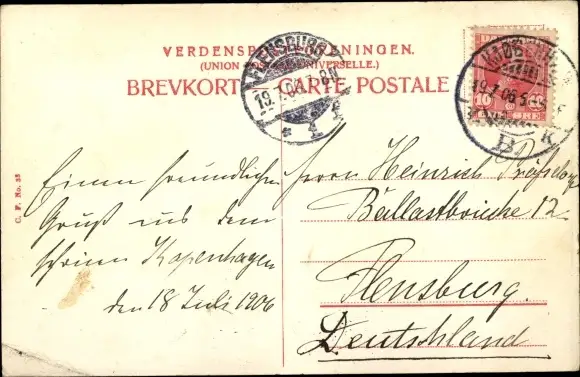 VERDENSPOSTFORENINGEN.
(UNION POSTALE UNIVERSELLE.)
BREVKORT — CARTE POSTALE
FLENSBURG
19.7.06. 7-8N.
* 1 f
KJØBENHAVN
19.7.06
B. K
10 10
C. F. No. 33
Einen freundlichen
Gruß aus dem
schönen Kopenhagen
den 18 Juli 1906
Herrn Heinrich
Ballastbrücke 12
Flensburg.
Deutschland